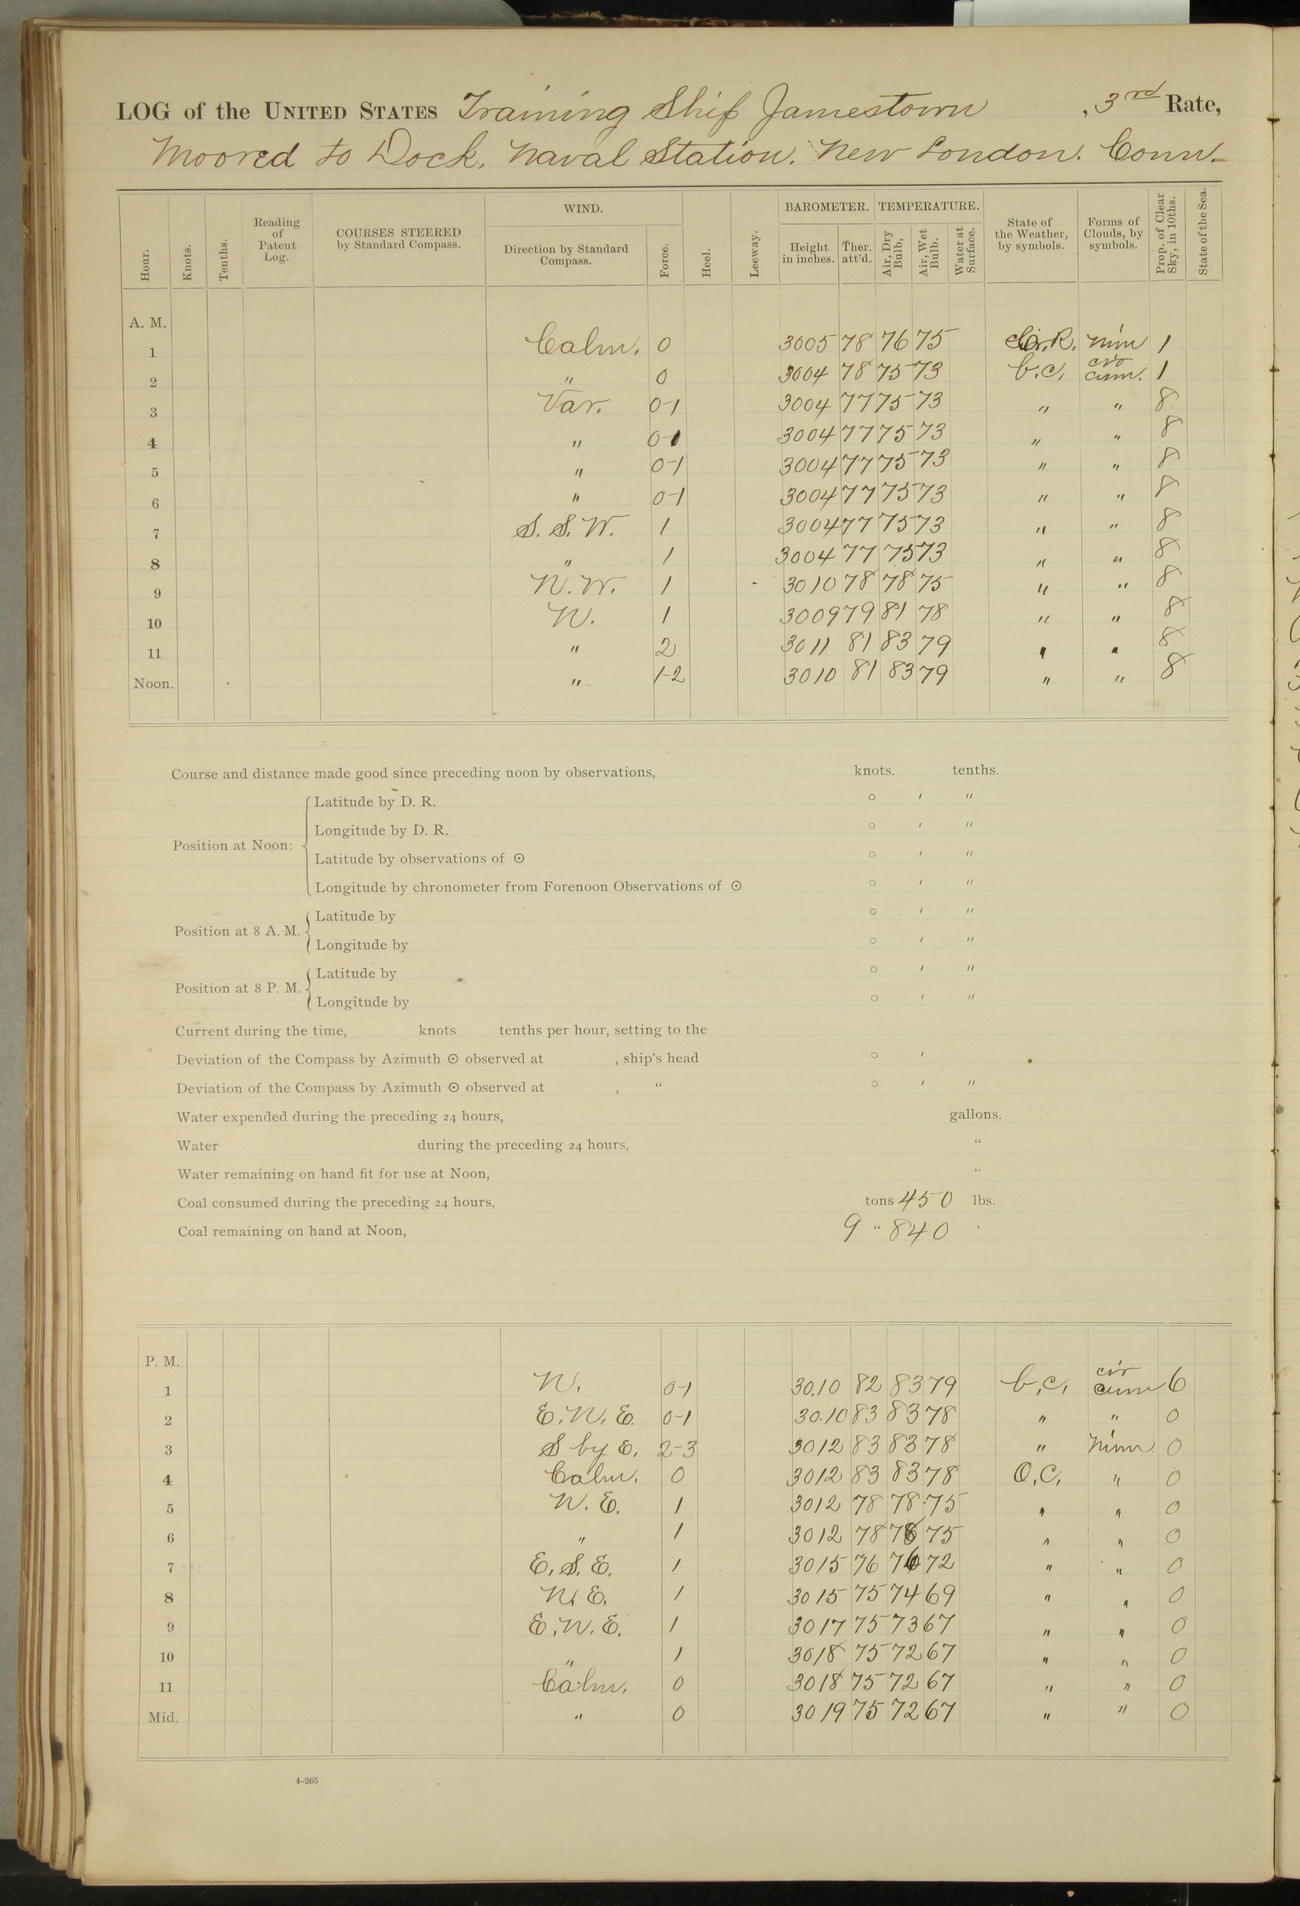 LOG of the UNITED STATES Training Ship Jamestown , 3rd Rate,
Moored to Dock, Naval Station. New London. Conn.
Hour. Knots. Tenths. Reading of Patent Log. COURSES STEERED by Standard Compass. WIND. Direction by Standard Compass. Force. Heel. Leeway. BAROMETER. Height in inches. Ther. att'd. TEMPERATURE. Air, Dry Bulb, Air, Wet Bulb. Water at Surface. State of the Weather, by symbols. Forms of Clouds, by symbols. Prop. of Clear Sky, in 10ths. State of the Sea.
A. M.
1 Calm. 0 3005 78 76 75 nim 1
2 " 0 3004 78 75 73 b.c. cir cum. 1
3 Var. 0-1 3004 77 75 73 " " 8
4 " 0-1 3004 77 75 73 " " 8
5 " 0-1 3004 77 75 73 " " 8
6 " 0-1 3004 77 75 73 " " 8
7 S. S. W. 1 3004 77 75 73 " " 8
8 " 1 3004 77 75 73 " " 8
9 N. W. 1 3010 78 78 75 " " 8
10 N. 1 3009 79 81 78 " " 8
11 " 2 3011 81 83 79 " " 8
Noon. " 1-2 3010 81 83 79 " " 8
Course and distance made good since preceding noon by observations, knots. tenths.
Position at Noon:
Latitude by D. R. ° ′ ″
Longitude by D. R. ° ′ ″
Latitude by observations of ⊙ ° ′ ″
Longitude by chronometer from Forenoon Observations of ⊙ ° ′ ″
Position at 8 A. M.
Latitude by ° ′ ″
Longitude by ° ′ ″
Position at 8 P. M.
Latitude by ° ′ ″
Longitude by ° ′ ″
Current during the time, knots tenths per hour, setting to the
Deviation of the Compass by Azimuth ⊙ observed at , ship's head ° ′
Deviation of the Compass by Azimuth ⊙ observed at , " ° ′ ″
Water expended during the preceding 24 hours, gallons.
Water during the preceding 24 hours, "
Water remaining on hand fit for use at Noon, "
Coal consumed during the preceding 24 hours, tons 450 lbs.
Coal remaining on hand at Noon, 9 " 840
P. M.
1 N. 0-1 30.10 82 83 79 b.c. cir cum 6
2 E. N. E. 0-1 30.10 83 83 78 " " 0
3 S by E. 2-3 3012 83 83 78 " Nim 0
4 Calm. 0 3012 83 83 78 O.C. " 0
5 N. E. 1 3012 78 78 75 " " 0
6 " 1 3012 78 78 75 " " 0
7 E. S. E. 1 3015 76 76 72 " " 0
8 N. E. 1 3015 75 74 69 " " 0
9 E. N. E. 1 3017 75 73 67 " " 0
10 " 1 3018 75 72 67 " " 0
11 Calm. 0 3018 75 72 67 " " 0
Mid. " 0 3019 75 72 67 " " 0
4-265